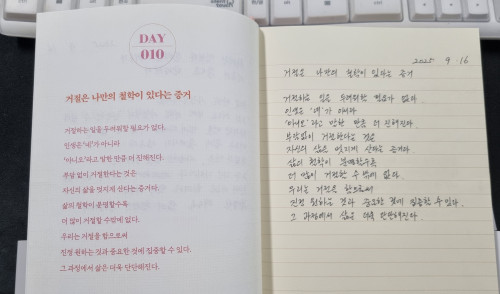 DAY
010
거절은 나만의 철학이 있다는 증거
거절하는 일을 두려워할 필요가 없다.
인생은 '네'가 아니라
'아니오'라고 말한 만큼 더 진해진다.
부담 없이 거절한다는 것은
자신의 삶을 멋지게 산다는 증거다.
삶의 철학이 분명할수록
더 많이 거절할 수밖에 없다.
우리는 거절을 함으로써
진정 원하는 것과 중요한 것에 집중할 수 있다.
그 과정에서 삶은 더욱 단단해진다.
2025 9. 16
거절은 나만의 철학이 있다는 증거
거절하는 일을 두려워할 필요가 없다.
인생은 '네'가 아니라
'아니오'라고 말한 만큼 더 진해진다.
부담없이 거절한다는 것은
자신의 삶을 멋지게 산다는 증거다.
삶의 철학이 분명할수록
더 많이 거절할 수 밖에 없다.
우리는 거절을 함으로써
진정 원하는 것과 중요한 것에 집중할 수 있다.
그 과정에서 삶은 더욱 단단해진다.